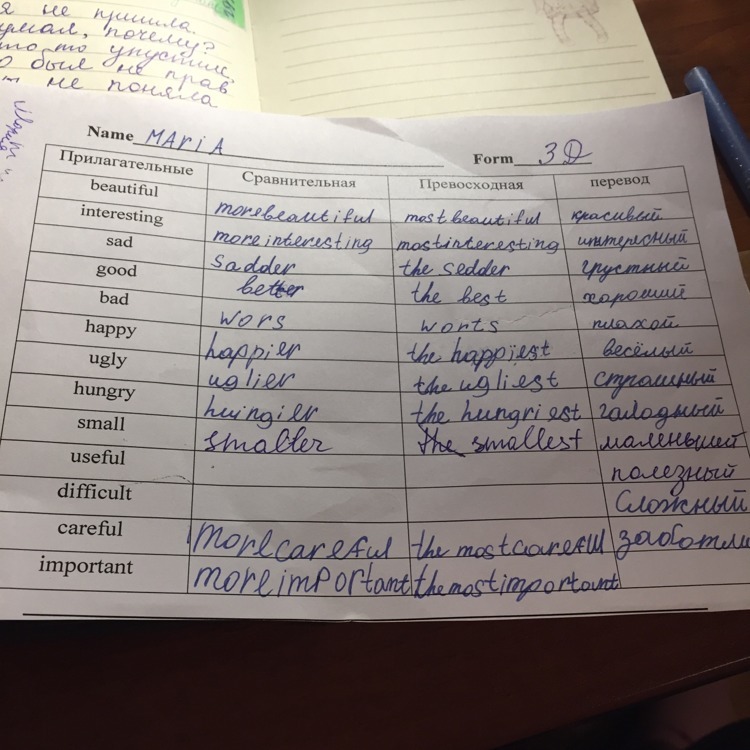 я не пришла.
думал, почему?
то-то упустил.
о был не прав
т не поняла
Name MAriA Form 3D
Прилагательные Сравнительная Превосходная перевод
beautiful more beautiful most beautiful красивый
interesting more interesting most interesting интересный
sad sadder the sedder грустный
good better the best хороший
bad wors worts плахой
happy happier the happiest весёлый
ugly uglier the ugliest страшный
hungry huingier the hungriest галадный
small smaller the smallest маленьшей
useful полезный
difficult Сложный
careful more careful the most careful заботли
important more important the most important